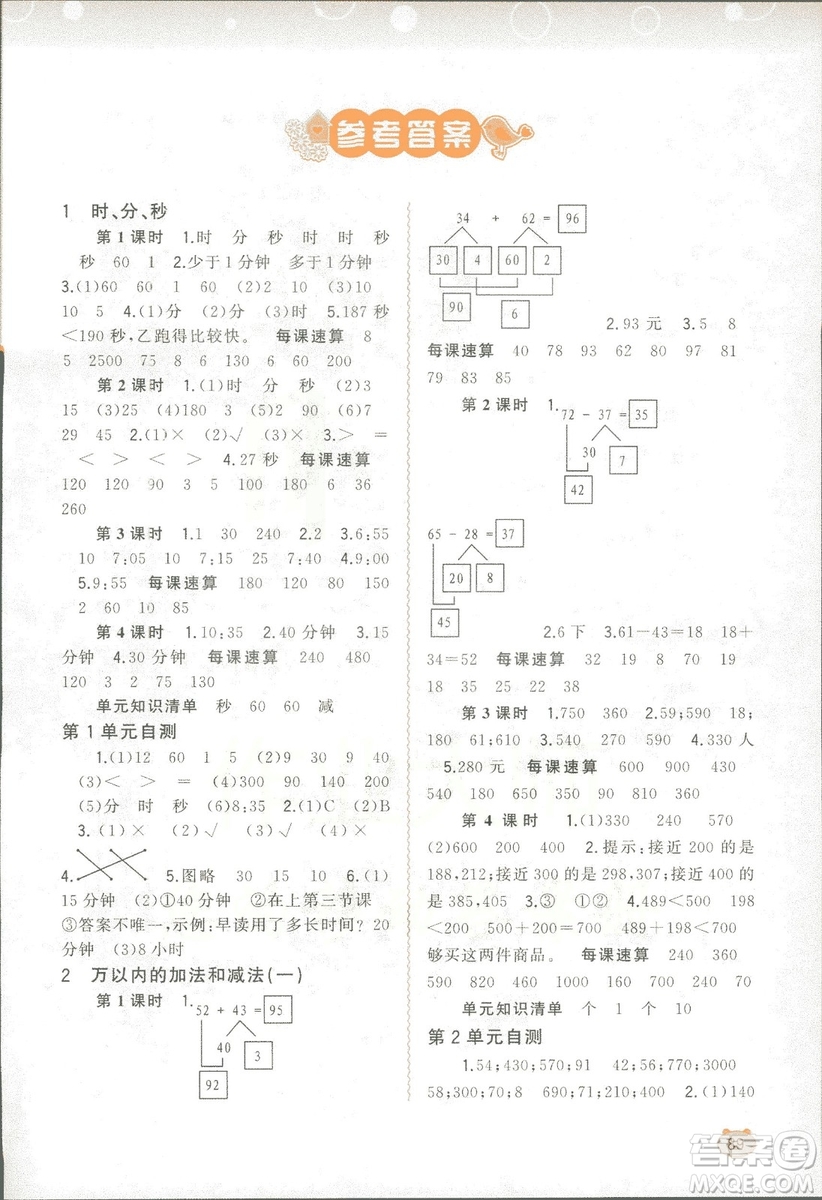 参考答案
1 时、分、秒
第1课时 1.时 分 秒 时 时 秒
秒 60 1 2.少于1分钟 多于1分钟
3.(1)60 60 1 60 (2)2 10 (3)10
10 5 4.(1)分 (2)分 (3)时 5.187
<190秒,乙跑得比较快。 每课速算 8
5 2500 75 8 6 130 6 60 200
第2课时 1.(1)时 分 秒 (2)3
15 (3)25 (4)180 3 (5)2 90 (6)7
29 45 2.(1)× (2)√ (3)× 3.> =
< > < > 4.27秒 每课速算
120 120 90 150 2 180 6 36
260
第3课时 1.1 30 240 2.2 3.6:55
10 7:05 10 7:15 10 7:25 4.9:00
5.9:55 每课速算 180 120 80 150
2 60 10 85
第4课时 1.10:35 2.40分钟 3.15
分钟 4.30分钟 每课速算 240 480
120 3 2 75 130
单元知识清单 秒 60 60 减
第1单元自测
1.(1)12 60 1 5 (2)9 30 9 40
(3)< > = (4)300 90 100 140
(5)分 时 秒 (6)8:35 2.(1)C (2)B
3.(1)× (2)√ (3)√ (4)×
4. 5.图略 30 15 10 6.(1)
15分钟 (2)①40分钟 ②在上第三节课
③答案不唯一,示例:早读用了多长时间? 20
分钟 (3)8小时
2 万以内的加法和减法(一)
第1课时 1.
52 + 43 = 95
40 3
92
34 + 62 = 96
30 4 60 2
90
6
2.93元 3.5 8
每课速算 40 78 93 62 80 97 81
79 83 85
第2课时 1.
72 - 37 = 35
30 7
42
65 - 28 = 37
20 8
45
2.6下 3.61-43=18 18+
34=52 每课速算 32 19 8 70 19
18 35 25 22 38
第3课时 1.750 360 2.59;590 18;
180 61;610 3.540 270 590 4.330人
5.280元 每课速算 600 900 430
540 180 640 810 730 820 360
第4课时 1.(1)330 240 570
(2)600 200 400 2.提示:接近200的是
188,212;接近300的是298,307;接近400的
是385,405 3.③ ①② 4.489<500 198
<200 500+200=700 489+198<700
够买这两件商品。 每课速算 240 360
590 820 460 1000 650 700 70
单元知识清单 个 1 个 10
第2单元自测
1.54;430;570;91 42;56;770;3000
58;30;70;8 690;71;62;80 2.(1)140
83
答案卷
MXQE.COM